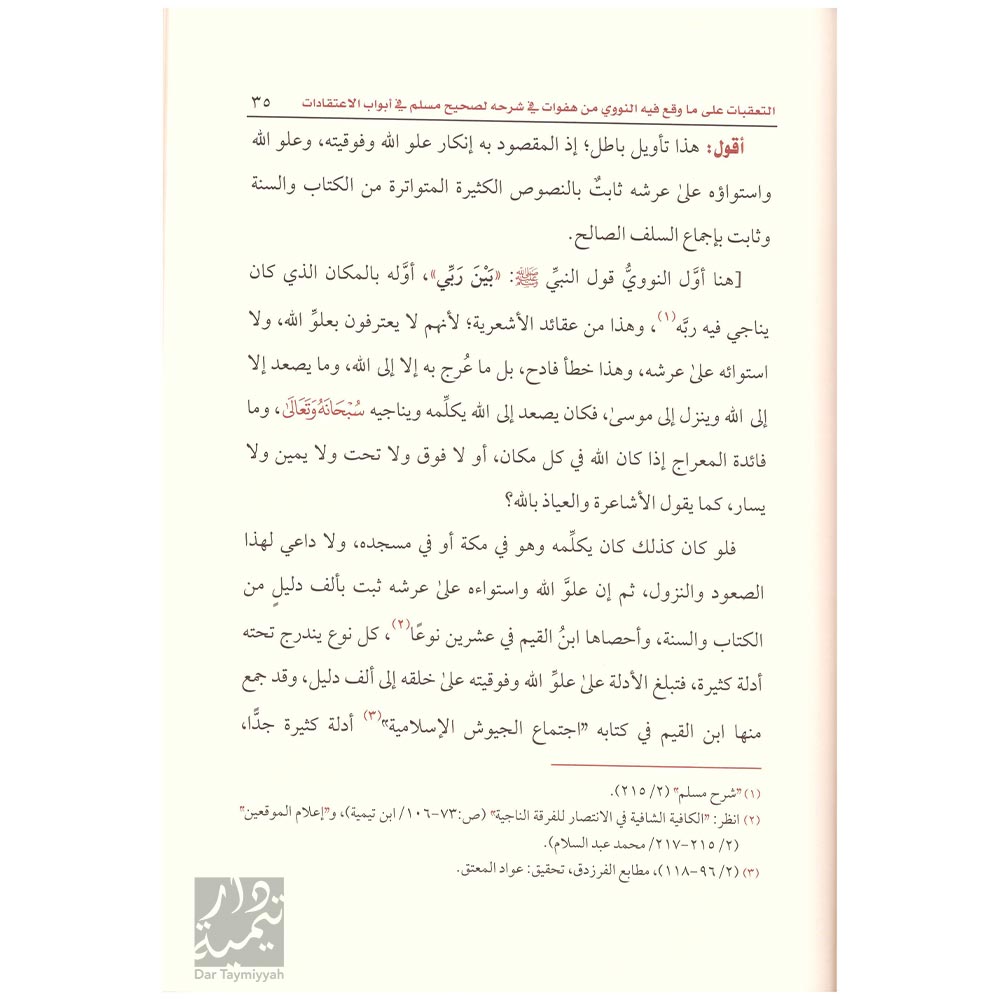 التعقبات على ما وقع فيه النووي من هفوات في شرحه لصحيح مسلم في أبواب الاعتقادات ٣٥
أقول: هذا تأويل باطل؛ إذ المقصود به إنكار علو الله وفوقيته، وعلو الله
واستواؤه علىٰ عرشه ثابتٌ بالنصوص الكثيرة المتواترة من الكتاب والسنة
وثابت بإجماع السلف الصالح.
[هنا أوَّل النوويُّ قول النبيِّ ﷺ: «بَيْنَ رَبِّي»، أوَّله بالمكان الذي كان
يناجي فيه ربَّه(١)، وهذا من عقائد الأشعرية؛ لأنهم لا يعترفون بعلوِّ الله، ولا
استوائه علىٰ عرشه، وهذا خطأ فادح، بل ما عُرج به إلا إلى الله، وما يصعد إلا
إلى الله وينزل إلى موسىٰ، فكان يصعد إلى الله يكلِّمه ويناجيه سُبْحَانَهُ وَتَعَالَىٰ، وما
فائدة المعراج إذا كان الله في كل مكان، أو لا فوق ولا تحت ولا يمين ولا
يسار، كما يقول الأشاعرة والعياذ بالله؟
فلو كان كذلك كان يكلِّمه وهو في مكة أو في مسجده، ولا داعي لهذا
الصعود والنزول، ثم إن علوَّ الله واستواءه علىٰ عرشه ثبت بألف دليلٍ من
الكتاب والسنة، وأحصاها ابنُ القيم في عشرين نوعًا(٢)، كل نوع يندرج تحته
أدلة كثيرة، فتبلغ الأدلة علىٰ علوِّ الله وفوقيته علىٰ خلقه إلى ألف دليل، وقد جمع
منها ابن القيم في كتابه "اجتماع الجيوش الإسلامية"(٣) أدلة كثيرة جدًّا،
(١) "شرح مسلم" (٢/ ٢١٥).
(٢) انظر: "الكافية الشافية في الانتصار للفرقة الناجية" (ص:٧٣-١٠٦/ ابن تيمية)، و"إعلام الموقعين"
(٢/ ٢١٥-٢١٧/ محمد عبد السلام).
(٣) (٢/ ٩٦-١١٨)، مطابع الفرزدق، تحقيق: عواد المعتق.
دار
تيمية
Dar Taymiyyah